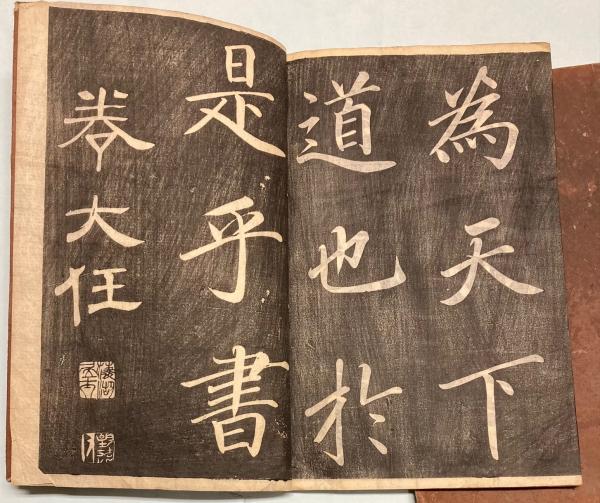 為天下
道也於
是乎書
卷大任